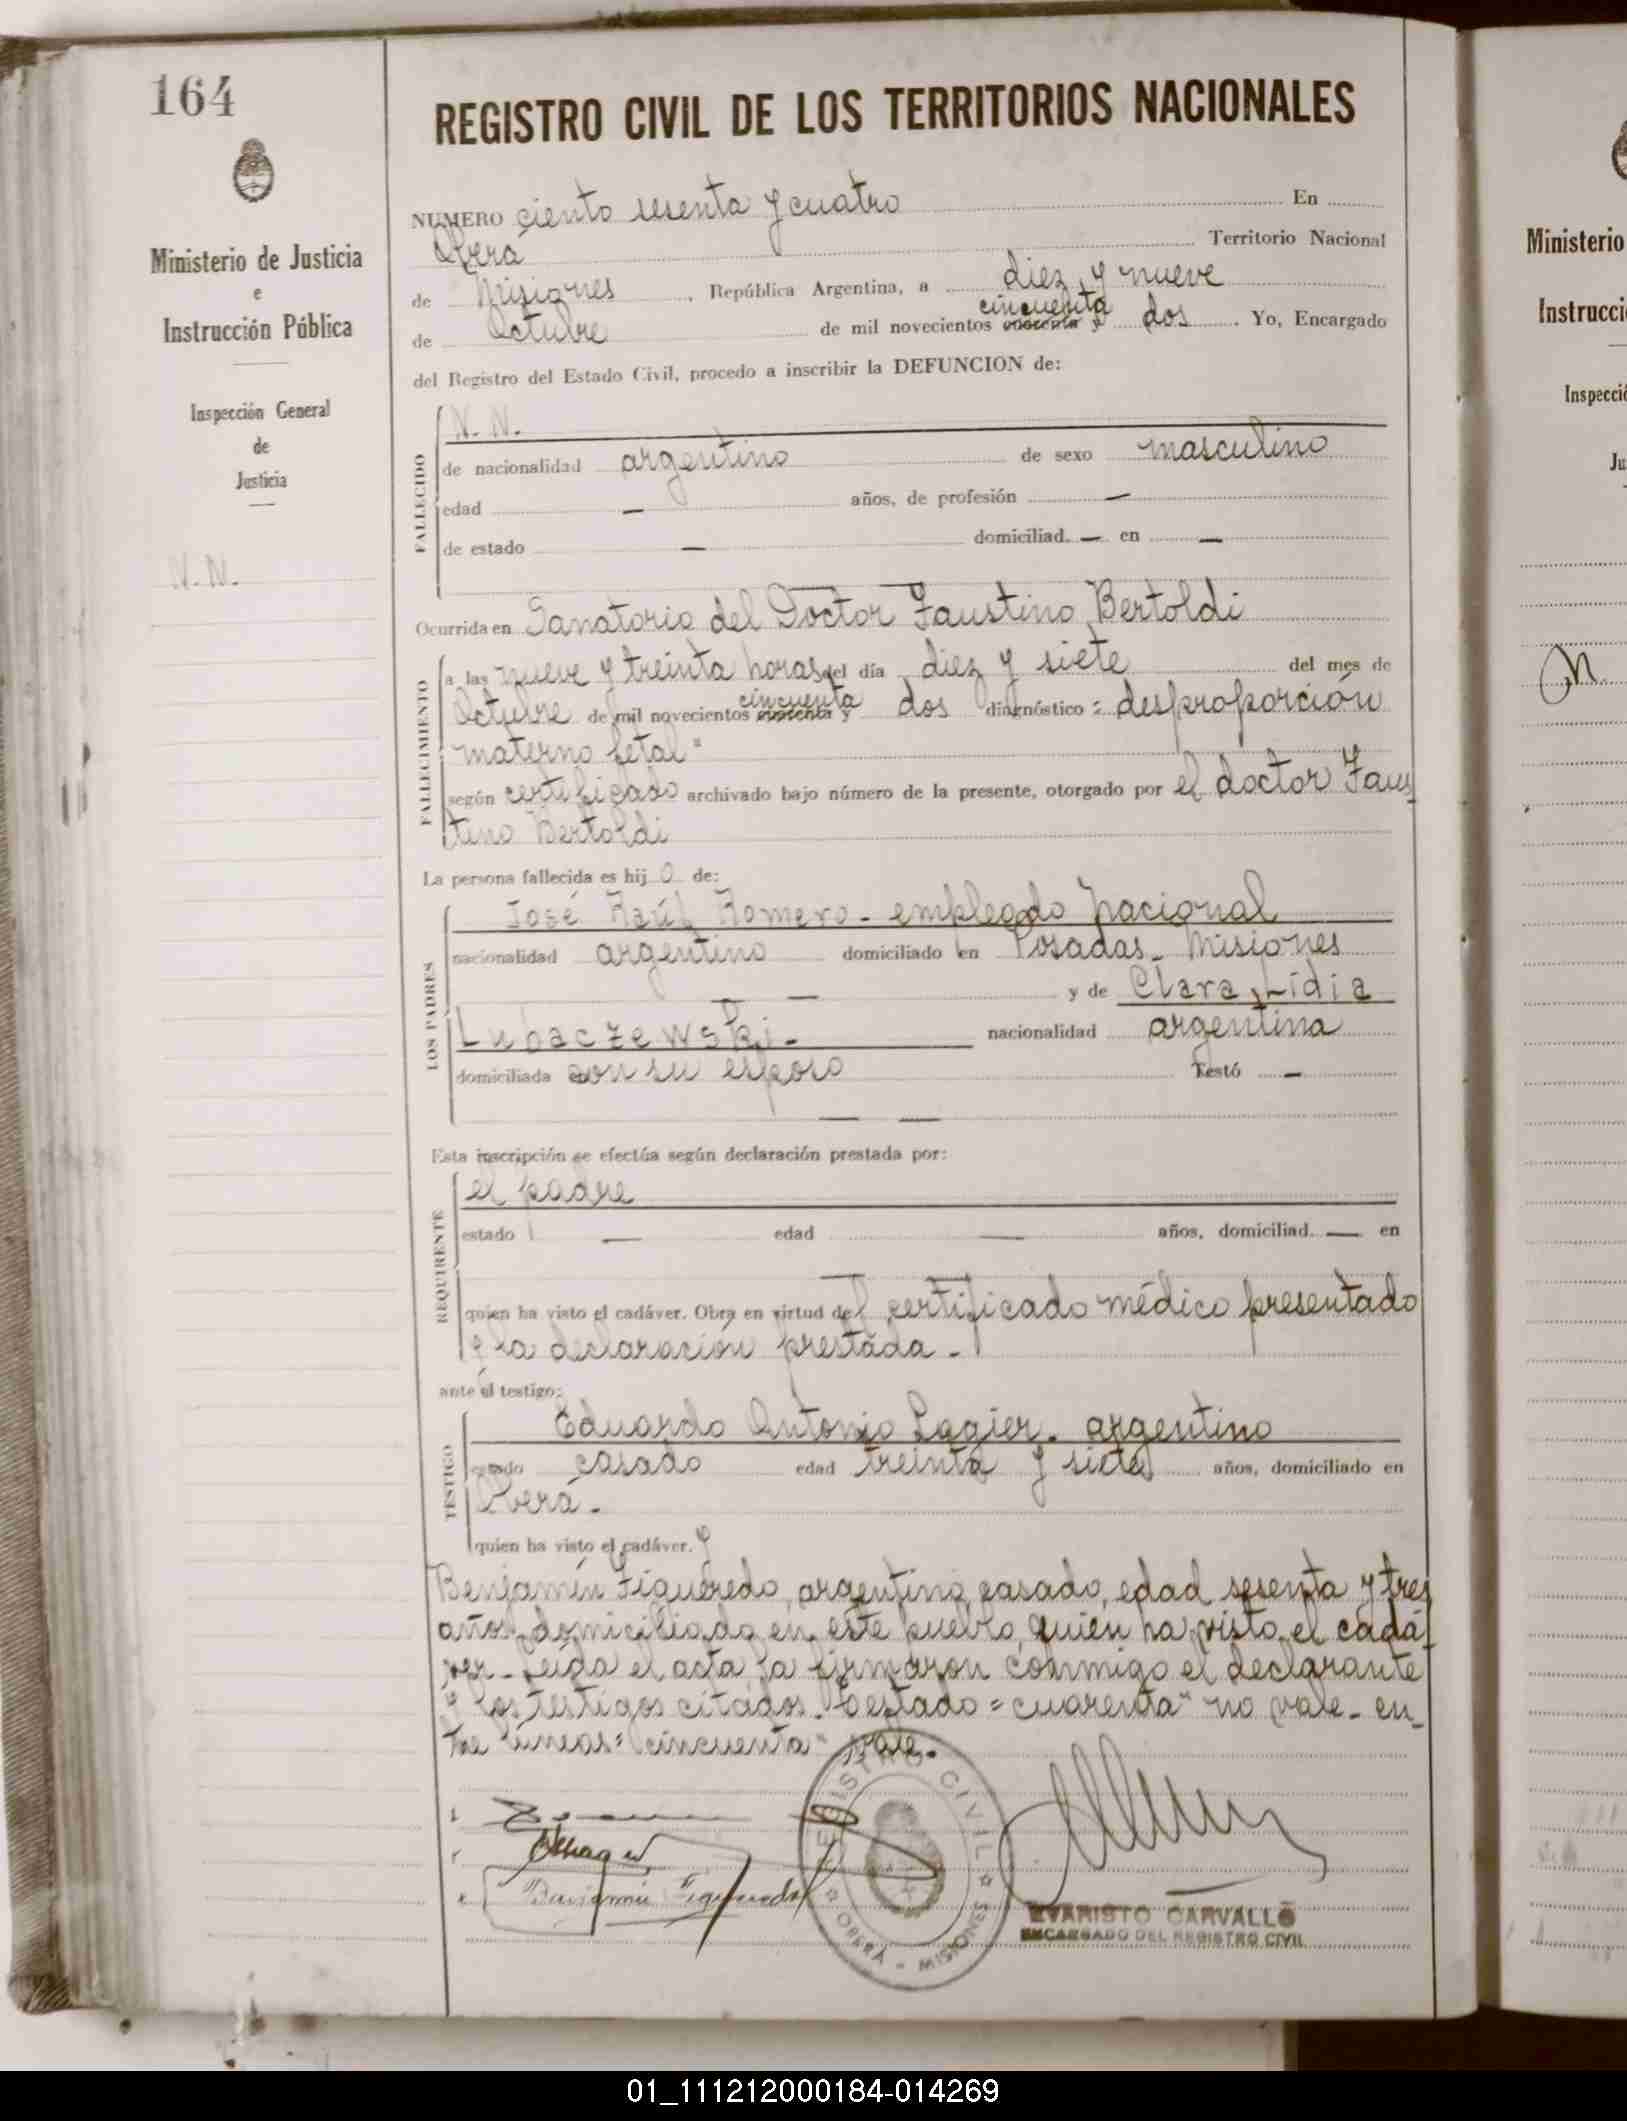 164
REGISTRO CIVIL DE LOS TERRITORIOS NACIONALES
Ministerio de Justicia
e
Instrucción Pública
Inspección General
de
Justicia
N. N.
NUMERO ciento sesenta y cuatro En
Oberá Territorio Nacional
de Misiones, República Argentina, a diez y nueve
cincuenta
de Octubre de mil novecientos cuarenta y dos. Yo, Encargado
del Registro del Estado Civil, procedo a inscribir la DEFUNCION de:
FALLECIDO
N. N.
de nacionalidad argentino de sexo masculino
edad — años, de profesión —
de estado — domiciliad. — en —
Ocurrida en Sanatorio del Doctor Faustino Bertoldi
FALLECIMIENTO
a las nueve y treinta horas del día diez y siete del mes de
cincuenta
Octubre de mil novecientos cuarenta y dos diagnóstico: desproporción
materno fetal"
según certificado archivado bajo número de la presente, otorgado por el doctor Faus
tino Bertoldi
La persona fallecida es hijo de:
LOS PADRES
José Raúl Romero - empleado Nacional
nacionalidad argentino domiciliado en Posadas - Misiones
— y de Clara Lidia
Lubaczewski - nacionalidad argentina
domiciliada en con su esposo Testó —
— —
Esta inscripción se efectúa según declaración prestada por:
REQUIRENTE
el padre
estado — edad — años, domiciliad. — en
quien ha visto el cadáver. Obra en virtud del certificado médico presentado
y la declaración prestada -
ante el testigo:
TESTIGO
Eduardo Antonio Lagier - argentino
estado casado edad treinta y siete años, domiciliado en
Oberá -
quien ha visto el cadáver. y
Benjamín Figueredo, argentino, casado, edad sesenta y tres
años, domiciliado en este pueblo, quien ha visto el cadá-
ver - Leída el acta la firmaron conmigo el declarante
y los testigos citados - Testado = cuarenta" no vale - en-
tre líneas: cincuenta" vale.
Benjamín Figueredo
REGISTRO CIVIL
OBERÁ - MISIONES
EVARISTO CARVALLO
ENCARGADO DEL REGISTRO CIVIL
Ministerio
Instrucci
Inspecci
Ju
01_111212000184-014269